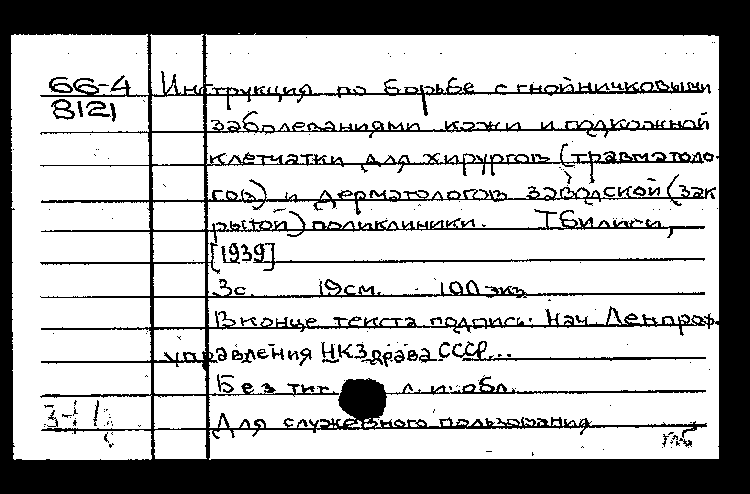 66-4 Инструкция по борьбе с гнойничковыми
8121
заболеваниями кожи и подкожной
клетчатки для хирургов (травматоло-
гов) и дерматологов заводской (зак
рытой) поликлиники. Тбилиси,
[1939]
3с. 19см. 100 экз
В конце текста подпись: Нач. Лечпроф.
управления НКЗдрава СССР...
Без тит. л. и обл.
Для служебного пользования